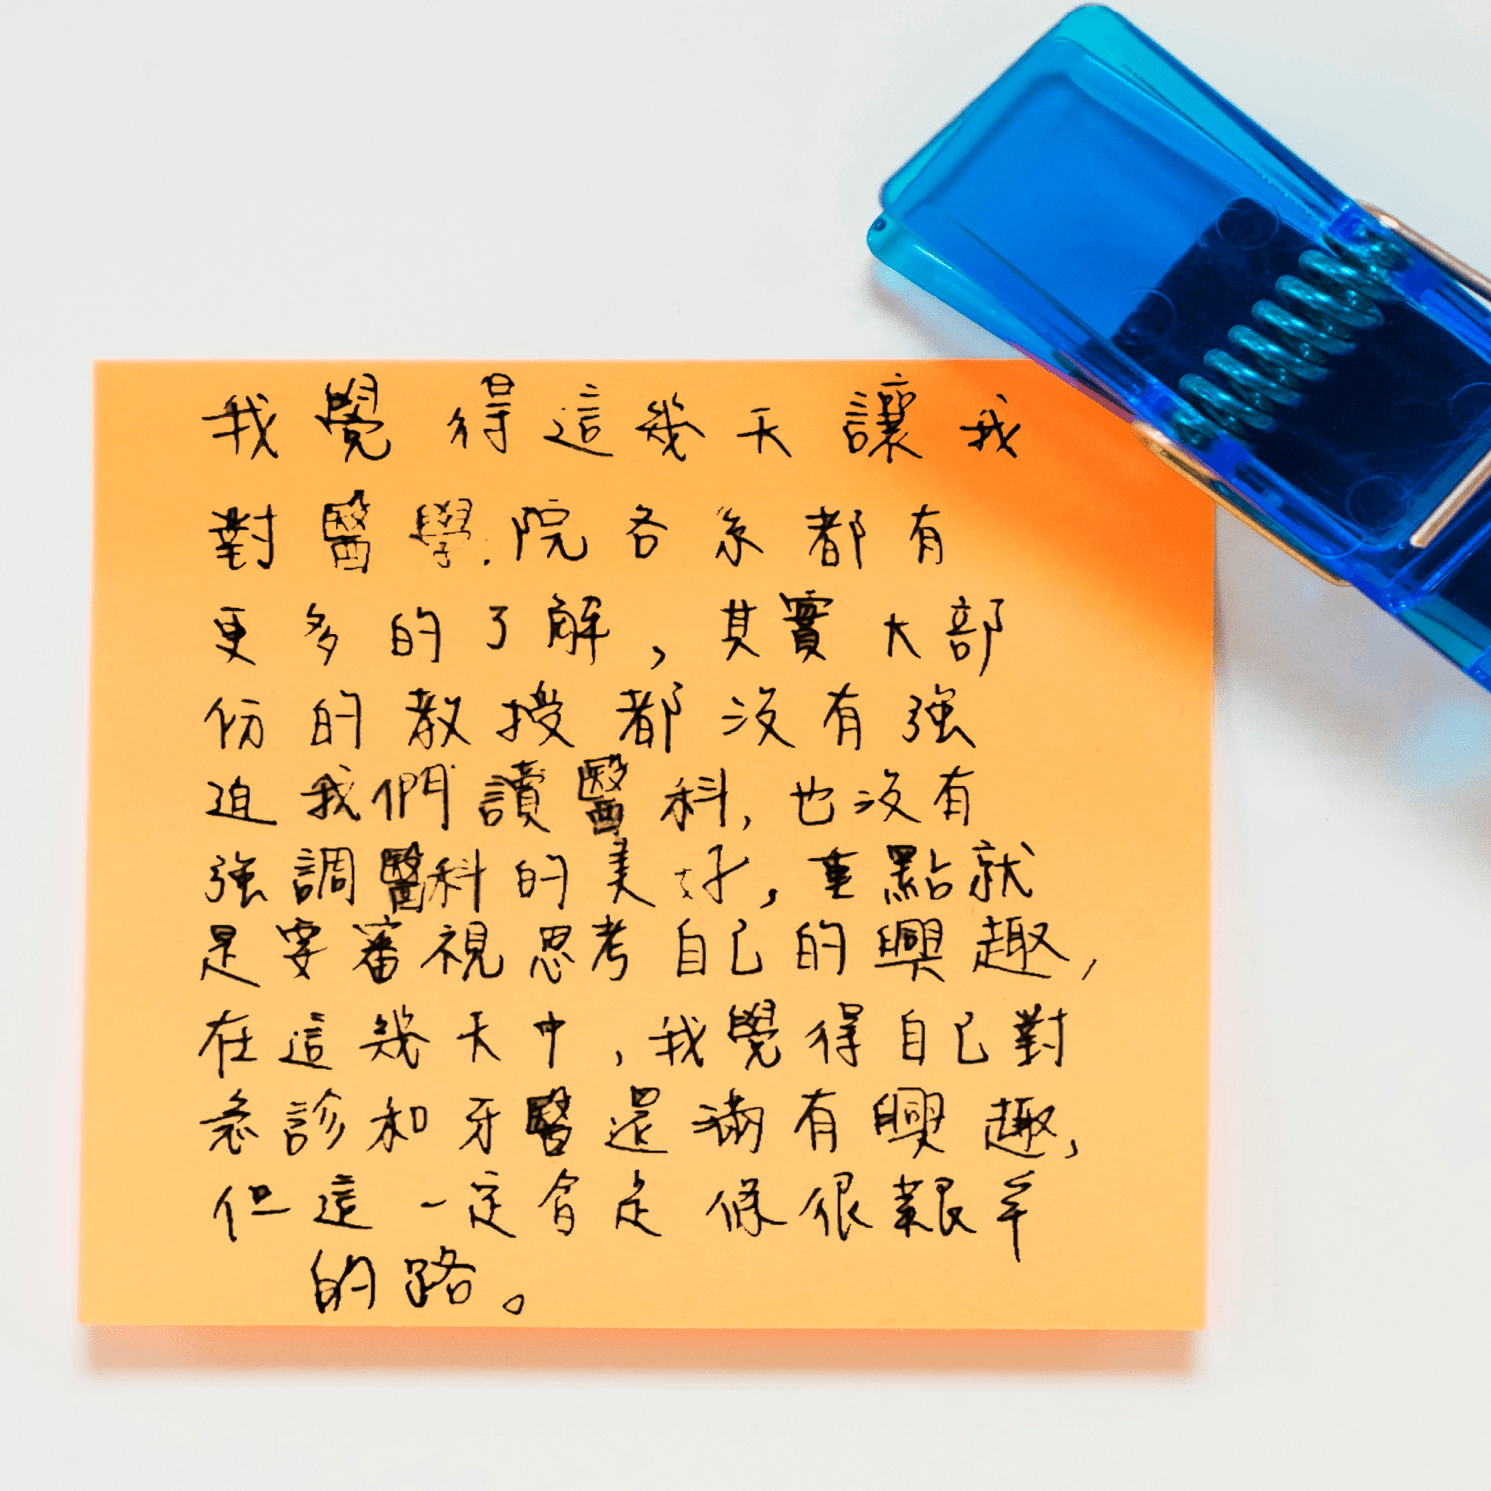 我覺得這幾天讓我
對醫學院各系都有
更多的了解，其實大部
份的教授都沒有強
迫我們讀醫科，也沒有
強調醫科的美好，重點就
是要審視思考自己的興趣，
在這幾天中，我覺得自己對
急診和牙醫還滿有興趣，
但這一定會是條很艱辛
的路。